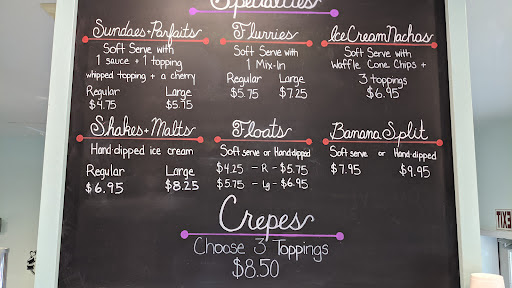 Specialties
Sundaes + Parfaits
Soft Serve with
1 sauce + 1 topping
whipped topping + a cherry
Regular Large
$4.75 $5.75
Flurries
Soft Serve with
1 Mix-In
Regular Large
$5.75 $7.25
Ice Cream Nachos
Soft Serve with
Waffle Cone Chips +
3 toppings
$6.95
Shakes + Malts
Hand-dipped ice cream
Regular Large
$6.95 $8.25
Floats
Soft serve or Hand-dipped
$4.25 - R - $5.75
$5.75 - Lg - $6.95
Banana Split
Soft serve or Hand-dipped
$7.95 $9.95
Crepes
Choose 3 Toppings
$8.50
EXIT